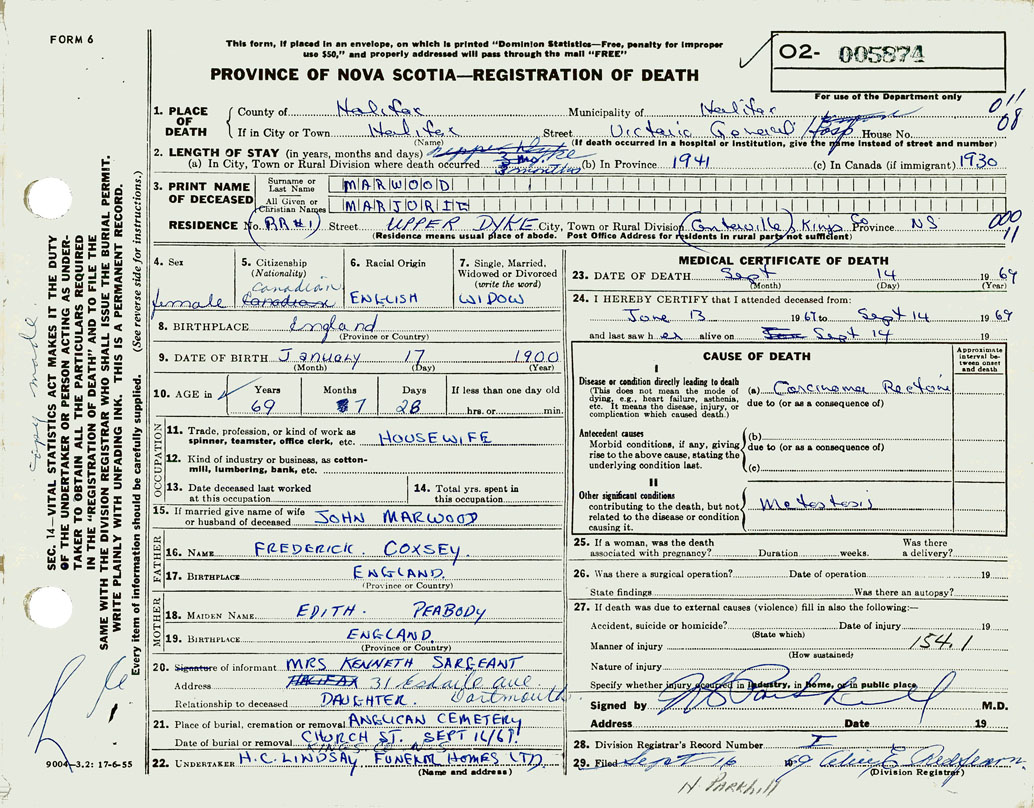 FORM 6
This form, if placed in an envelope, on which is printed "Dominion Statistics—Free, penalty for improper
use $50," and properly addressed will pass through the mail "FREE"
PROVINCE OF NOVA SCOTIA—REGISTRATION OF DEATH
02- 005874
For use of the Department only
011
08
1. PLACE OF DEATH
County of Halifax Municipality of Halifax
If in City or Town Halifax Street Victoria General Hosp House No.
(Name) (If death occurred in a hospital or institution, give the name instead of street and number)
2. LENGTH OF STAY (in years, months and days)
(a) In City, Town or Rural Division where death occurred 3 mo. 3 months (b) In Province 1941 (c) In Canada (if immigrant) 1930
3. PRINT NAME OF DECEASED
Surname or Last Name MARWOOD
All Given or Christian Names MARJORIE
RESIDENCE No. RR#1 Street UPPER DYKE City, Town or Rural Division Centerville, Kings Co Province NS
000
11
(Residence means usual place of abode. Post Office Address for residents in rural parts not sufficient)
4. Sex
female
5. Citizenship
(Nationality)
Canadian
Canadian
6. Racial Origin
ENGLISH
7. Single, Married,
Widowed or Divorced
(write the word)
WIDOW
8. BIRTHPLACE England
(Province or Country)
9. DATE OF BIRTH January 17 1900
(Month) (Day) (Year)
10. AGE in
Years Months Days If less than one day old
69 7 28 hrs. or min.
OCCUPATION
11. Trade, profession, or kind of work as
spinner, teamster, office clerk, etc. HOUSEWIFE
12. Kind of industry or business, as cotton-
mill, lumbering, bank, etc.
13. Date deceased last worked
at this occupation
14. Total yrs. spent in
this occupation
15. If married give name of wife
or husband of deceased JOHN MARWOOD
FATHER
16. NAME FREDERICK. COXSEY.
17. BIRTHPLACE ENGLAND.
(Province or Country)
MOTHER
18. MAIDEN NAME EDITH. PEABODY
19. BIRTHPLACE ENGLAND.
(Province or Country)
20. Signature of informant MRS KENNETH SARGEANT
Address HALIFAX 31 Esdaile Ave. Dartmouth
Relationship to deceased DAUGHTER.
21. Place of burial, cremation or removal ANGLICAN CEMETERY
Date of burial or removal CHURCH ST. SEPT 16/69.
KINGS CO N.S
22. UNDERTAKER H.C. LINDSAY FUNERAL HOMES LTD.
(Name and address)
MEDICAL CERTIFICATE OF DEATH
23. DATE OF DEATH Sept 14 1969
(Month) (Day) (Year)
24. I HEREBY CERTIFY that I attended deceased from:
June 13 1969 to Sept 14 1969
and last saw her alive on Sept 14 19
CAUSE OF DEATH
Approximate interval between onset and death
I
Disease or condition directly leading to death
(This does not mean the mode of
dying, e.g., heart failure, asthenia,
etc. It means the disease, injury, or
complication which caused death.)
(a) Carcinoma Rectum
due to (or as a consequence of)
Antecedent causes
Morbid conditions, if any, giving
rise to the above cause, stating the
underlying condition last.
(b)
due to (or as a consequence of)
(c)
II
Other significant conditions
contributing to the death, but not
related to the disease or condition
causing it.
Metastasis
25. If a woman, was the death
associated with pregnancy? Duration weeks. Was there
a delivery?
26. Was there a surgical operation? Date of operation 19
State findings Was there an autopsy?
27. If death was due to external causes (violence) fill in also the following:—
Accident, suicide or homicide? Date of injury 19
(State which)
Manner of injury 154.1
(How sustained)
Nature of injury
Specify whether injury occurred in industry, in home, or in public place
Signed by M.D.
Address Date 19
28. Division Registrar's Record Number
29. Filed Sept 16 19
(Division Registrar)
N. Parkhill
SEC. 14—VITAL STATISTICS ACT MAKES IT THE DUTY
OF THE UNDERTAKER OR PERSON ACTING AS UNDER-
TAKER TO OBTAIN ALL THE PARTICULARS REQUIRED
IN THE "REGISTRATION OF DEATH" AND TO FILE THE
SAME WITH THE DIVISION REGISTRAR WHO SHALL ISSUE THE BURIAL PERMIT.
WRITE PLAINLY WITH UNFADING INK. THIS IS A PERMANENT RECORD.
Every item of information should be carefully supplied. (See reverse side for instructions.)
copy made
9004-3.2: 17-6-55